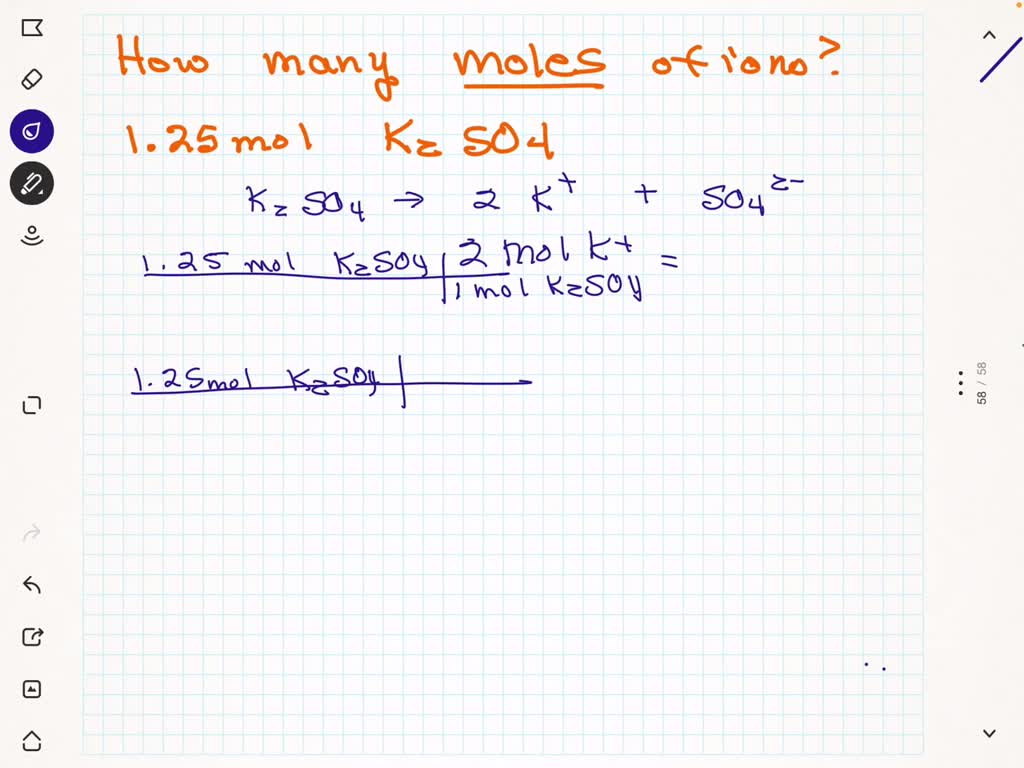 How many moles of ions?
1.25 mol K2 SO4
K2 SO4 → 2 K+ + SO4 2-
1.25 mol K2SO4 | 2 mol K+ =
1 mol K2SO4
1.25 mol K2SO4
58 / 58